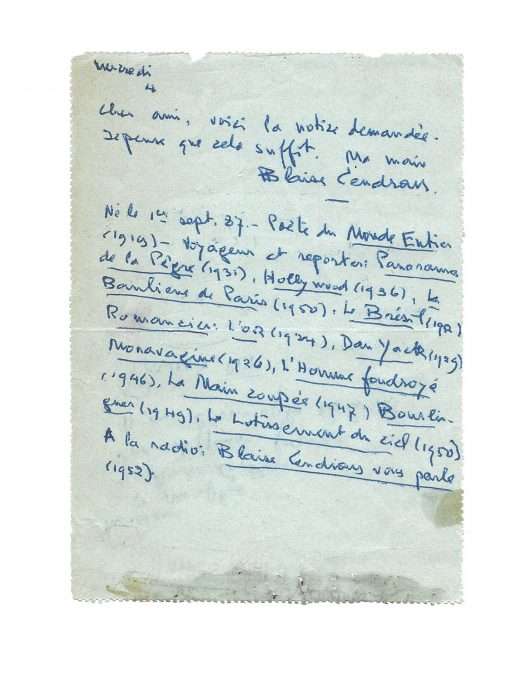 Mercredi
4
Cher ami, voici la notice demandée.
Je pense que cela suffit. Ma main
Blaise Cendrars.
Né le 1er sept. 87. - Poète du Monde Entier
(1919) - Voyageur et reporter: Panorama
de la Pègre (1931), Hollywood (1936), La
Banlieue de Paris (1950), Le Brésil
Romancier: L'OR (1924), Dan Yack (1929)
Moravagine (1926), L'Homme foudroyé
(1946), La Main coupée (1947) Bourlin-
guer (1949), Le Lotissement du ciel (1950)
A la radio: Blaise Cendrars vous parle
(1952).